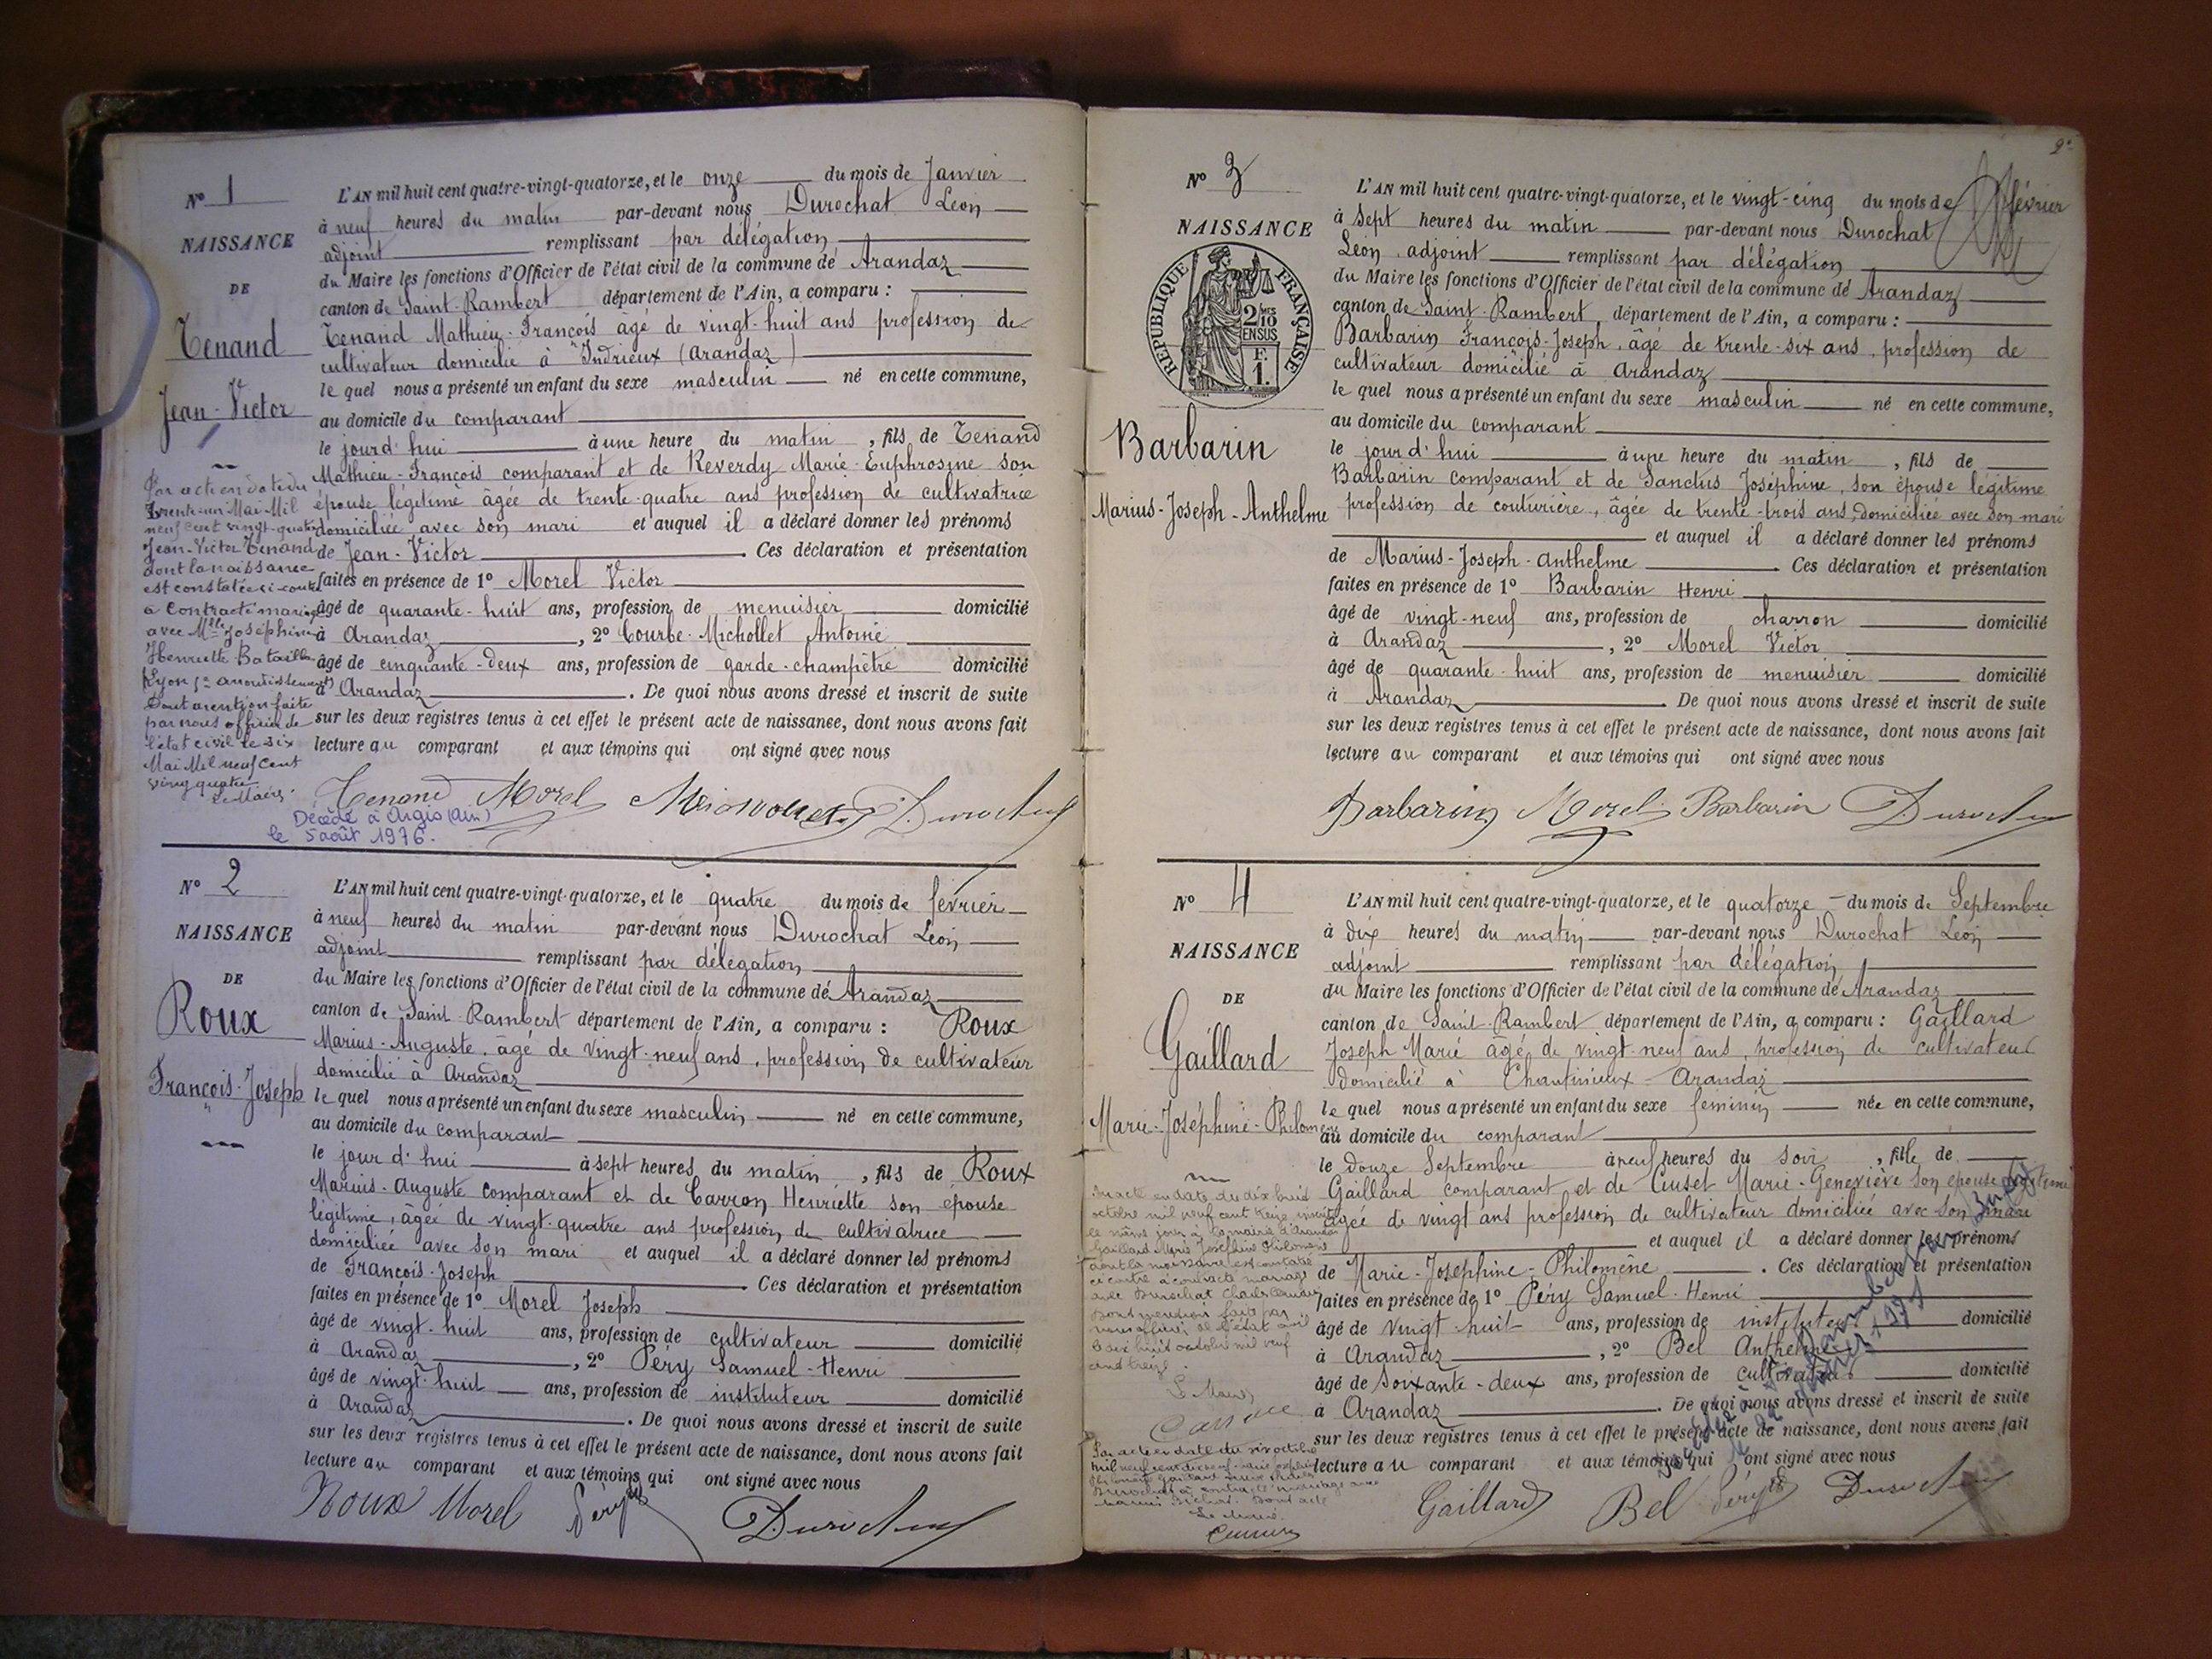 N° 1
NAISSANCE
DE
Tenand
Jean-Victor
L'AN mil huit cent quatre-vingt-quatorze, et le onze du mois de Janvier
à neuf heures du matin par-devant nous Durochat Léon
adjoint remplissant par délégation
du Maire les fonctions d'Officier de l'état civil de la commune de Arandaz
canton de Saint-Rambert département de l'Ain, a comparu :
Tenand Mathieu-François âgé de vingt-huit ans profession de
cultivateur domicilié à Indrieux (Arandaz)
le quel nous a présenté un enfant du sexe masculin né en cette commune,
au domicile du comparant
le jourd'hui à une heure du matin, fils de Tenand
Mathieu-François comparant et de Reverdy Marie-Euphrosine son
épouse légitime âgée de trente-quatre ans profession de cultivatrice
domiciliée avec son mari et auquel il a déclaré donner les prénoms
de Jean-Victor. Ces déclaration et présentation
faites en présence de 1° Morel Victor
âgé de quarante-huit ans, profession de menuisier domicilié
à Arandaz, 2° Courbe-Michollet Antoine
âgé de cinquante-deux ans, profession de garde-champêtre domicilié
à Arandaz. De quoi nous avons dressé et inscrit de suite
sur les deux registres tenus à cet effet le présent acte de naissance, dont nous avons fait
lecture au comparant et aux témoins qui ont signé avec nous
Par acte en date du
trente-un Mai Mil
neuf cent vingt-quatre
Jean-Victor Tenand
dont la naissance
est constatée ci-contre
a contracté mariage
avec Mlle Joséphine
Henriette Bataille
Dont mention faite
par nous officier de
l'état civil le six
Mai Mil neuf cent
vingt quatre
Le Maire.
Tenand Morel Michollet Durochat
Décédé à Argis (Ain)
le 5 août 1976.
N° 2
NAISSANCE
DE
Roux
François-Joseph
L'AN mil huit cent quatre-vingt-quatorze, et le quatre du mois de février
à neuf heures du matin par-devant nous Durochat Léon
adjoint remplissant par délégation
du Maire les fonctions d'Officier de l'état civil de la commune de Arandaz
canton de Saint-Rambert département de l'Ain, a comparu : Roux
Marius-Auguste, âgé de vingt-neuf ans, profession de cultivateur
domicilié à Arandaz
le quel nous a présenté un enfant du sexe masculin né en cette commune,
au domicile du comparant
le jour d'hui à sept heures du matin, fils de Roux
Marius-Auguste comparant et de Carron Henriette son épouse
légitime, âgée de vingt-quatre ans profession de cultivatrice
domiciliée avec son mari et auquel il a déclaré donner les prénoms
de François-Joseph Ces déclaration et présentation
faites en présence de 1° Morel Joseph
âgé de vingt-huit ans, profession de cultivateur domicilié
à Arandaz, 2° Péry Samuel-Henri
âgé de vingt-huit ans, profession de instituteur domicilié
à Arandaz. De quoi nous avons dressé et inscrit de suite
sur les deux registres tenus à cet effet le présent acte de naissance, dont nous avons fait
lecture au comparant et aux témoins qui ont signé avec nous
Roux Morel Péry Durochat
2e
N° 3
NAISSANCE
REPUBLIQUE FRANÇAISE
2 MES
10
EN SUS
F.
1.
Barbarin
Marius-Joseph-Anthelme
L'AN mil huit cent quatre-vingt-quatorze, et le vingt-cinq du mois de février
à sept heures du matin par-devant nous Durochat
Léon adjoint remplissant par délégation
du Maire les fonctions d'Officier de l'état civil de la commune de Arandaz
canton de Saint-Rambert, département de l'Ain, a comparu :
Barbarin François-Joseph, âgé de trente-six ans, profession de
cultivateur domicilié à Arandaz
le quel nous a présenté un enfant du sexe masculin né en cette commune,
au domicile du comparant
le jourd'hui à une heure du matin, fils de
Barbarin comparant et de Sanctus Joséphine, son épouse légitime
profession de couturière, âgée de trente-trois ans, domiciliée avec son mari
et auquel il a déclaré donner les prénoms
de Marius-Joseph-Anthelme Ces déclaration et présentation
faites en présence de 1° Barbarin Henri
âgé de vingt-neuf ans, profession de charron domicilié
à Arandaz, 2° Morel Victor
âgé de quarante-huit ans, profession de menuisier domicilié
à Arandaz De quoi nous avons dressé et inscrit de suite
sur les deux registres tenus à cet effet le présent acte de naissance, dont nous avons fait
lecture au comparant et aux témoins qui ont signé avec nous
Barbarin Morel Barbarin Durochat
N° 4
NAISSANCE
DE
Gaillard
Marie-Joséphine-Philomène
L'AN mil huit cent quatre-vingt-quatorze, et le quatorze du mois de Septembre
à dix heures du matin par-devant nous Durochat Léon
adjoint remplissant par délégation
du Maire les fonctions d'Officier de l'état civil de la commune de Arandaz
canton de Saint-Rambert département de l'Ain, a comparu : Gaillard
Joseph Marie âgé de vingt-neuf ans, profession de cultivateur
domicilié à Arandaz
le quel nous a présenté un enfant du sexe féminin née en cette commune,
au domicile du comparant
le douze Septembre à neuf heures du soir, fille de
Gaillard comparant et de Cuset Marie-Geneviève son épouse légitime
âgée de vingt ans profession de cultivateur domiciliée avec son mari
et auquel il a déclaré donner les prénoms
de Marie-Joséphine-Philomène. Ces déclaration et présentation
faites en présence de 1° Péry Samuel-Henri
âgé de vingt-huit ans, profession de instituteur domicilié
à Arandaz, 2° Bel Anthelme
âgé de soixante-deux ans, profession de cultivateur domicilié
à Arandaz. De quoi nous avons dressé et inscrit de suite
sur les deux registres tenus à cet effet le présent acte de naissance, dont nous avons fait
lecture au comparant et aux témoins qui ont signé avec nous
Par acte en date du dix huit
octobre mil neuf cent treize inscrit
le même jour à la mairie d'Arandaz
Gaillard Marie Joséphine Philomène
dont la naissance est constatée
ci contre a contracté mariage
avec Durochat Charles
dont mention faite par
nous officier de l'état civil
le dix huit octobre mil neuf
cent treize.
Le Maire,
Par acte en date du six octobre
mil neuf cent dix neuf
Le Maire.
Gaillard Bel Péry Durochat